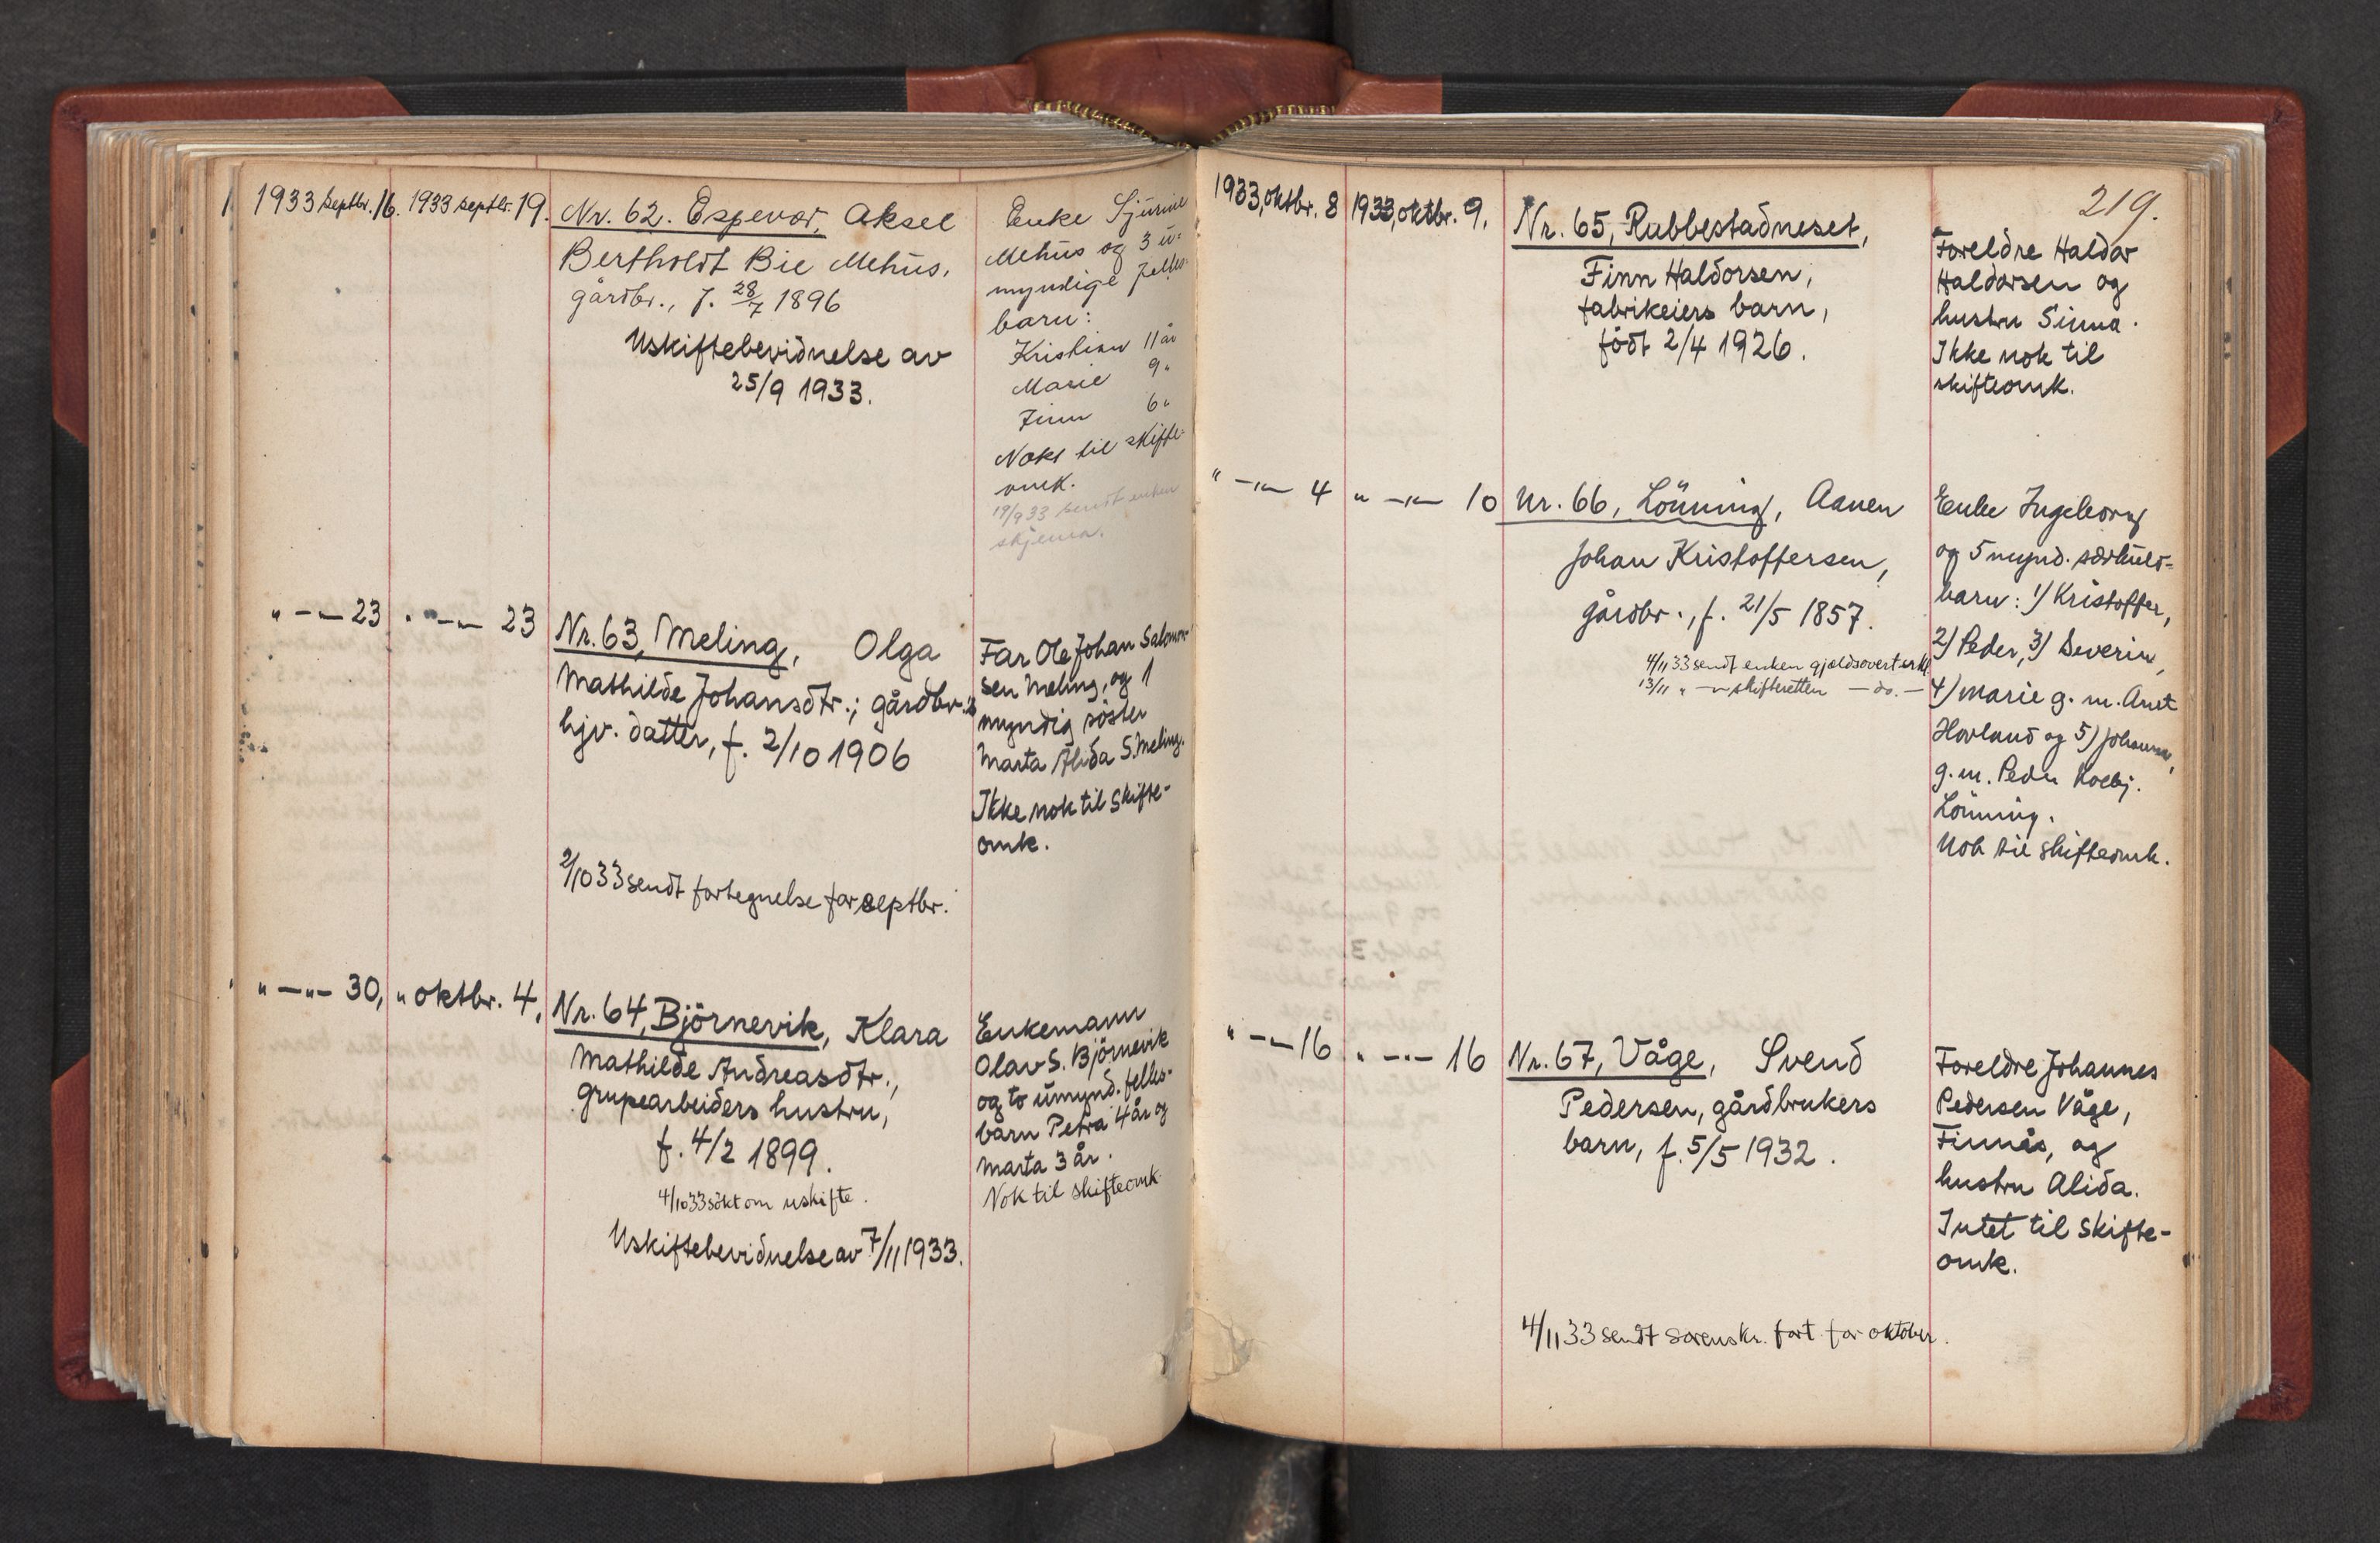 1933 septbr. 16. 1933 septbr. 19. Nr. 62. Espevær, Aksel
Bertholdt Bie Mehus,
gårdbr., f. 28/7 1896
Uskiftebevidnelse av
25/9 1933.
Enke Sjurine
Mehus og 3 u-
myndige felles-
barn:
Kristian 11 år
Marie 9 "
Finn 6 "
Nokk til skifte-
omk.
19/9 33 sendt enken
skjema.
" — " — 23 " — " — 23 Nr. 63, Meling, Olga
Mathilde Johansdtr.; gårdbr.s
hjv. datter, f. 2/10 1906
Far Ole Johan Salomon-
sen Meling, og 1
myndig söster
Marta Alida S. Meling.
Ikke nok til skifte-
omk.
2/10 33 sendt fortegnelse for septbr.
" — " — 30, " oktbr. 4, Nr. 64, Björnevik, Klara
Mathilde Andreasdtr.,
grupearbeiders hustru,
f. 4/2 1899.
4/10 33 sökt om uskifte.
Uskiftebevidnelse av 7/11 1933.
Enkemann
Olav S. Björnevik
og to umynd. felles-
barn Petra 4 år og
Marta 3 år.
Nok til skifteomk.
219.
1933, oktbr. 8 1933, oktbr. 9. Nr. 65, Rubbestadneset,
Finn Haldorsen,
fabrikeiers barn,
födt 2/4 1926.
Foreldre Haldor
Haldorsen og
hustru Sinna.
Ikke nok til
skifteomk.
" — " — 4 " — " — 10 Nr. 66, Lönning, Aanen
Johan Kristoffersen,
gårdbr., f. 21/5 1857.
4/11 33 sendt enken gjeldsovert.erkl.
13/11 " — " skifteretten — do. —
Enke Ingeborg
og 5 mynd. særkuld-
barn: 1) Kristoffer,
2) Peder, 3) Severin,
4) Marie g. m. Anet
Hovland og 5) Johanna,
g. m. Peder
Lönning.
Nok til skifteomk.
" — " — 16 " — " — 16 Nr. 67, Våge, Svend
Pedersen, gårdbrukers
barn, f. 5/5 1932.
Foreldre Johannes
Pedersen Våge,
Finnås, og
hustru Alida.
Intet til skifte-
omk.
4/11 33 sendt sorenskr. fort. for oktober.